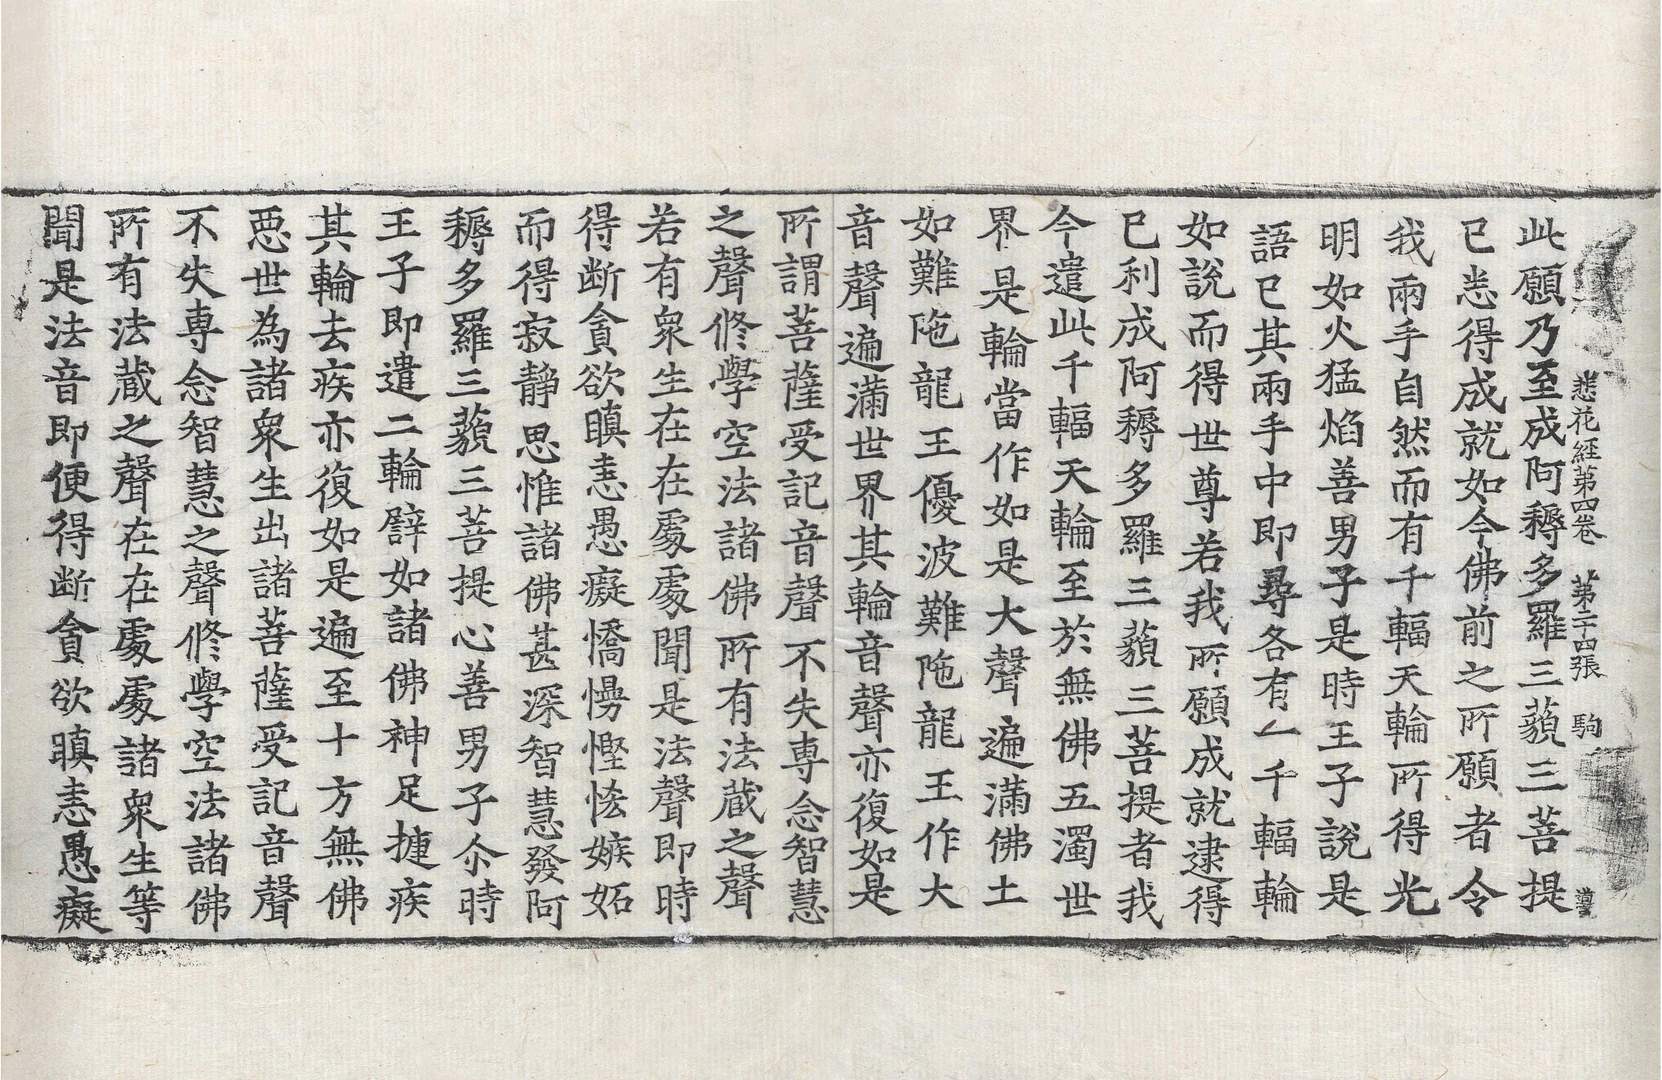 悲花經苐四卷 苐二十四張 駒
此願乃至成阿耨多羅三藐三菩提
已悉得成就如今佛前之所願者令
我兩手自然而有千輻天輪所得光
明如火猛焰善男子是時王子說是
語已其兩手中即尋各有一千輻輪
如說而得世尊若我所願成就逮得
已利成阿耨多羅三藐三菩提者我
今遣此千輻天輪至於無佛五濁世
界是輪當作如是大聲遍滿佛土
如難陁龍王優波難陁龍王作大
音聲遍滿世界其輪音聲亦復如是
所謂菩薩受記音聲不失專念智慧
之聲修學空法諸佛所有法藏之聲
若有眾生在在處處聞是法聲即時
得断貪欲瞋恚愚癡憍慢慳悋嫉妬
而得寂静思惟諸佛甚深智慧發阿
耨多羅三藐三菩提心善男子尒時
王子即遣二輪辟如諸佛神足揵疾
其輪去疾亦復如是遍至十方無佛
惡世為諸眾生出諸菩薩受記音聲
不失專念智慧之聲修學空法諸佛
所有法藏之聲在在處處諸眾生等
聞是法音即便得断貪欲瞋恚愚癡